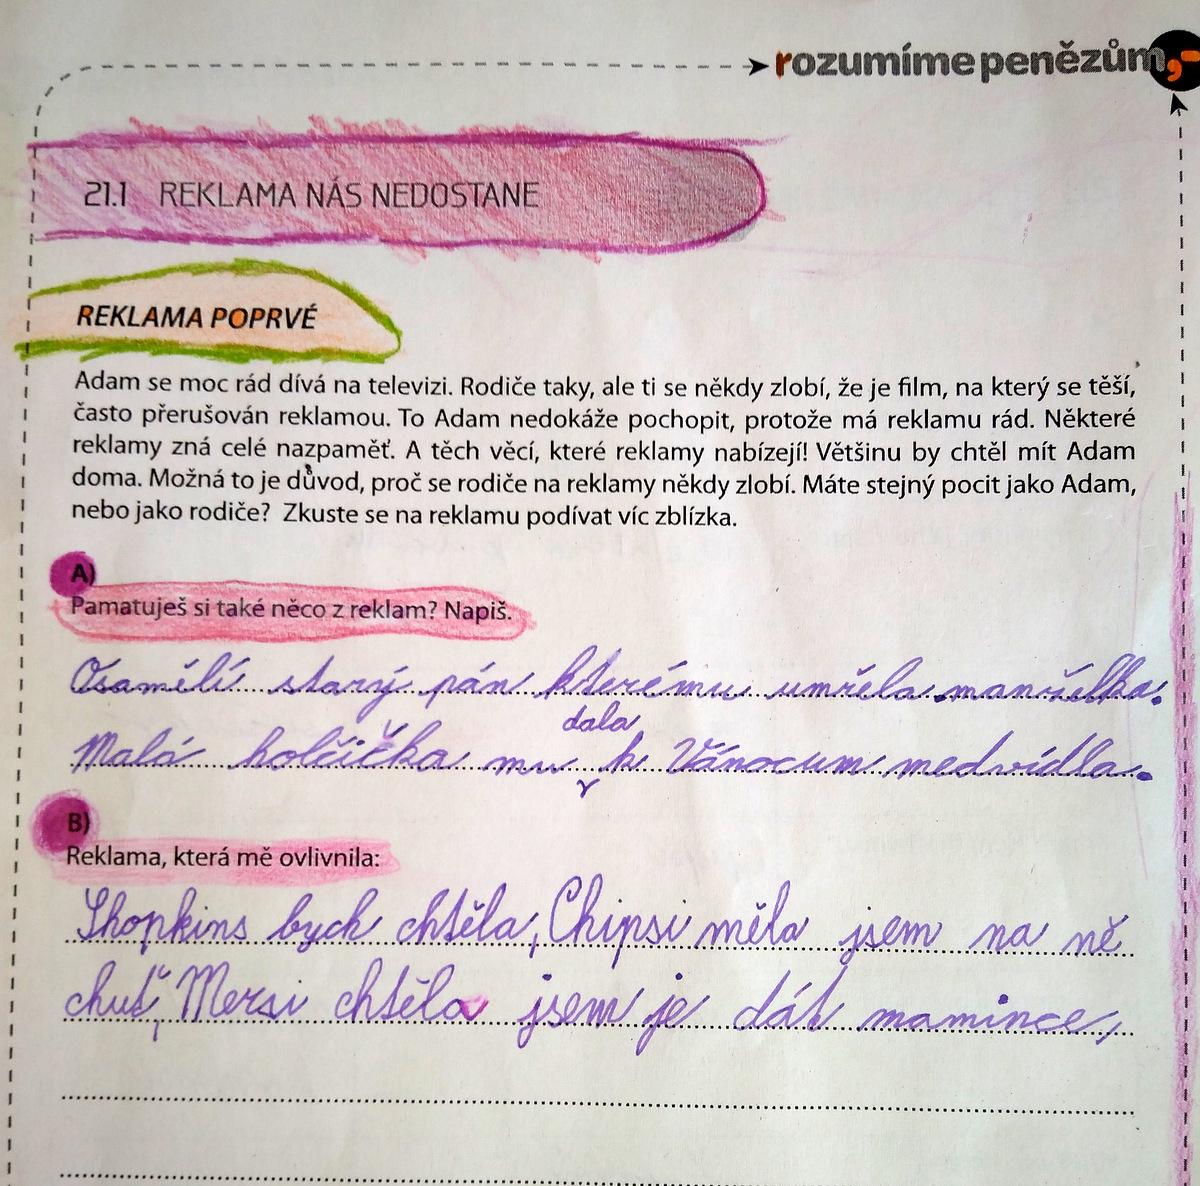 rozumíme penězům,-
21.1 REKLAMA NÁS NEDOSTANE
REKLAMA POPRVÉ
Adam se moc rád dívá na televizi. Rodiče taky, ale ti se někdy zlobí, že je film, na který se těší,
často přerušován reklamou. To Adam nedokáže pochopit, protože má reklamu rád. Některé
reklamy zná celé nazpaměť. A těch věcí, které reklamy nabízejí! Většinu by chtěl mít Adam
doma. Možná to je důvod, proč se rodiče na reklamy někdy zlobí. Máte stejný pocit jako Adam,
nebo jako rodiče? Zkuste se na reklamu podívat víc zblízka.
A)
Pamatuješ si také něco z reklam? Napiš.
Osamělí starý pán kterému umřela manželka.
dala
Malá holčička mu k Vánocum medvídla.
B)
Reklama, která mě ovlivnila:
Shopkins bych chtěla, Chipsi měla jsem na ně
chuť, Mersi chtěla jsem je dát mamince,